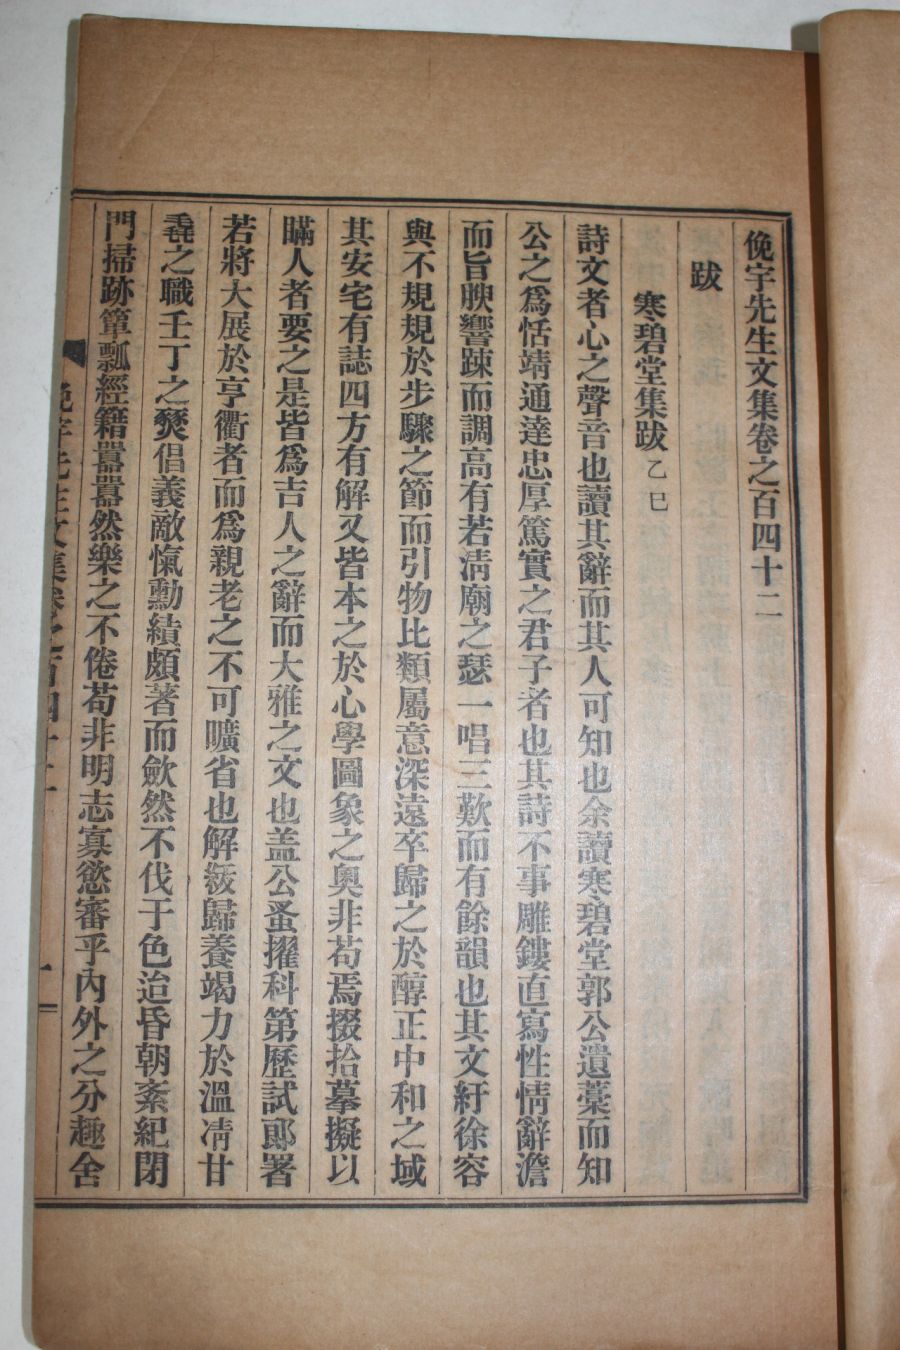 俛宇先生文集卷之百四十二
跋
寒碧堂集跋 乙巳
詩文者心之聲音也讀其辭而其人可知也余讀寒碧堂郭公遺藁而知
公之爲恬靖通達忠厚篤實之君子者也其詩不事雕鏤直寫性情辭澹
而旨腴響踈而調高有若淸廟之瑟一唱三歎而有餘韻也其文紆徐容
與不規規於步驟之節而引物比類屬意深遠卒歸之於醇正中和之域
其安宅有誌四方有解又皆本之於心學圖象之奧非苟焉掇拾摹擬以
瞞人者要之是皆爲吉人之辭而大雅之文也盖公蚤擢科第歷試郞署
若將大展於亨衢者而爲親老之不可曠省也解紱歸養竭力於溫凊甘
毳之職壬丁之燹倡義敵愾勳績頗著而歛然不伐于色迨昏朝紊紀閉
門掃跡簞瓢經籍囂囂然樂之不倦苟非明志寡慾審乎內外之分趣舍